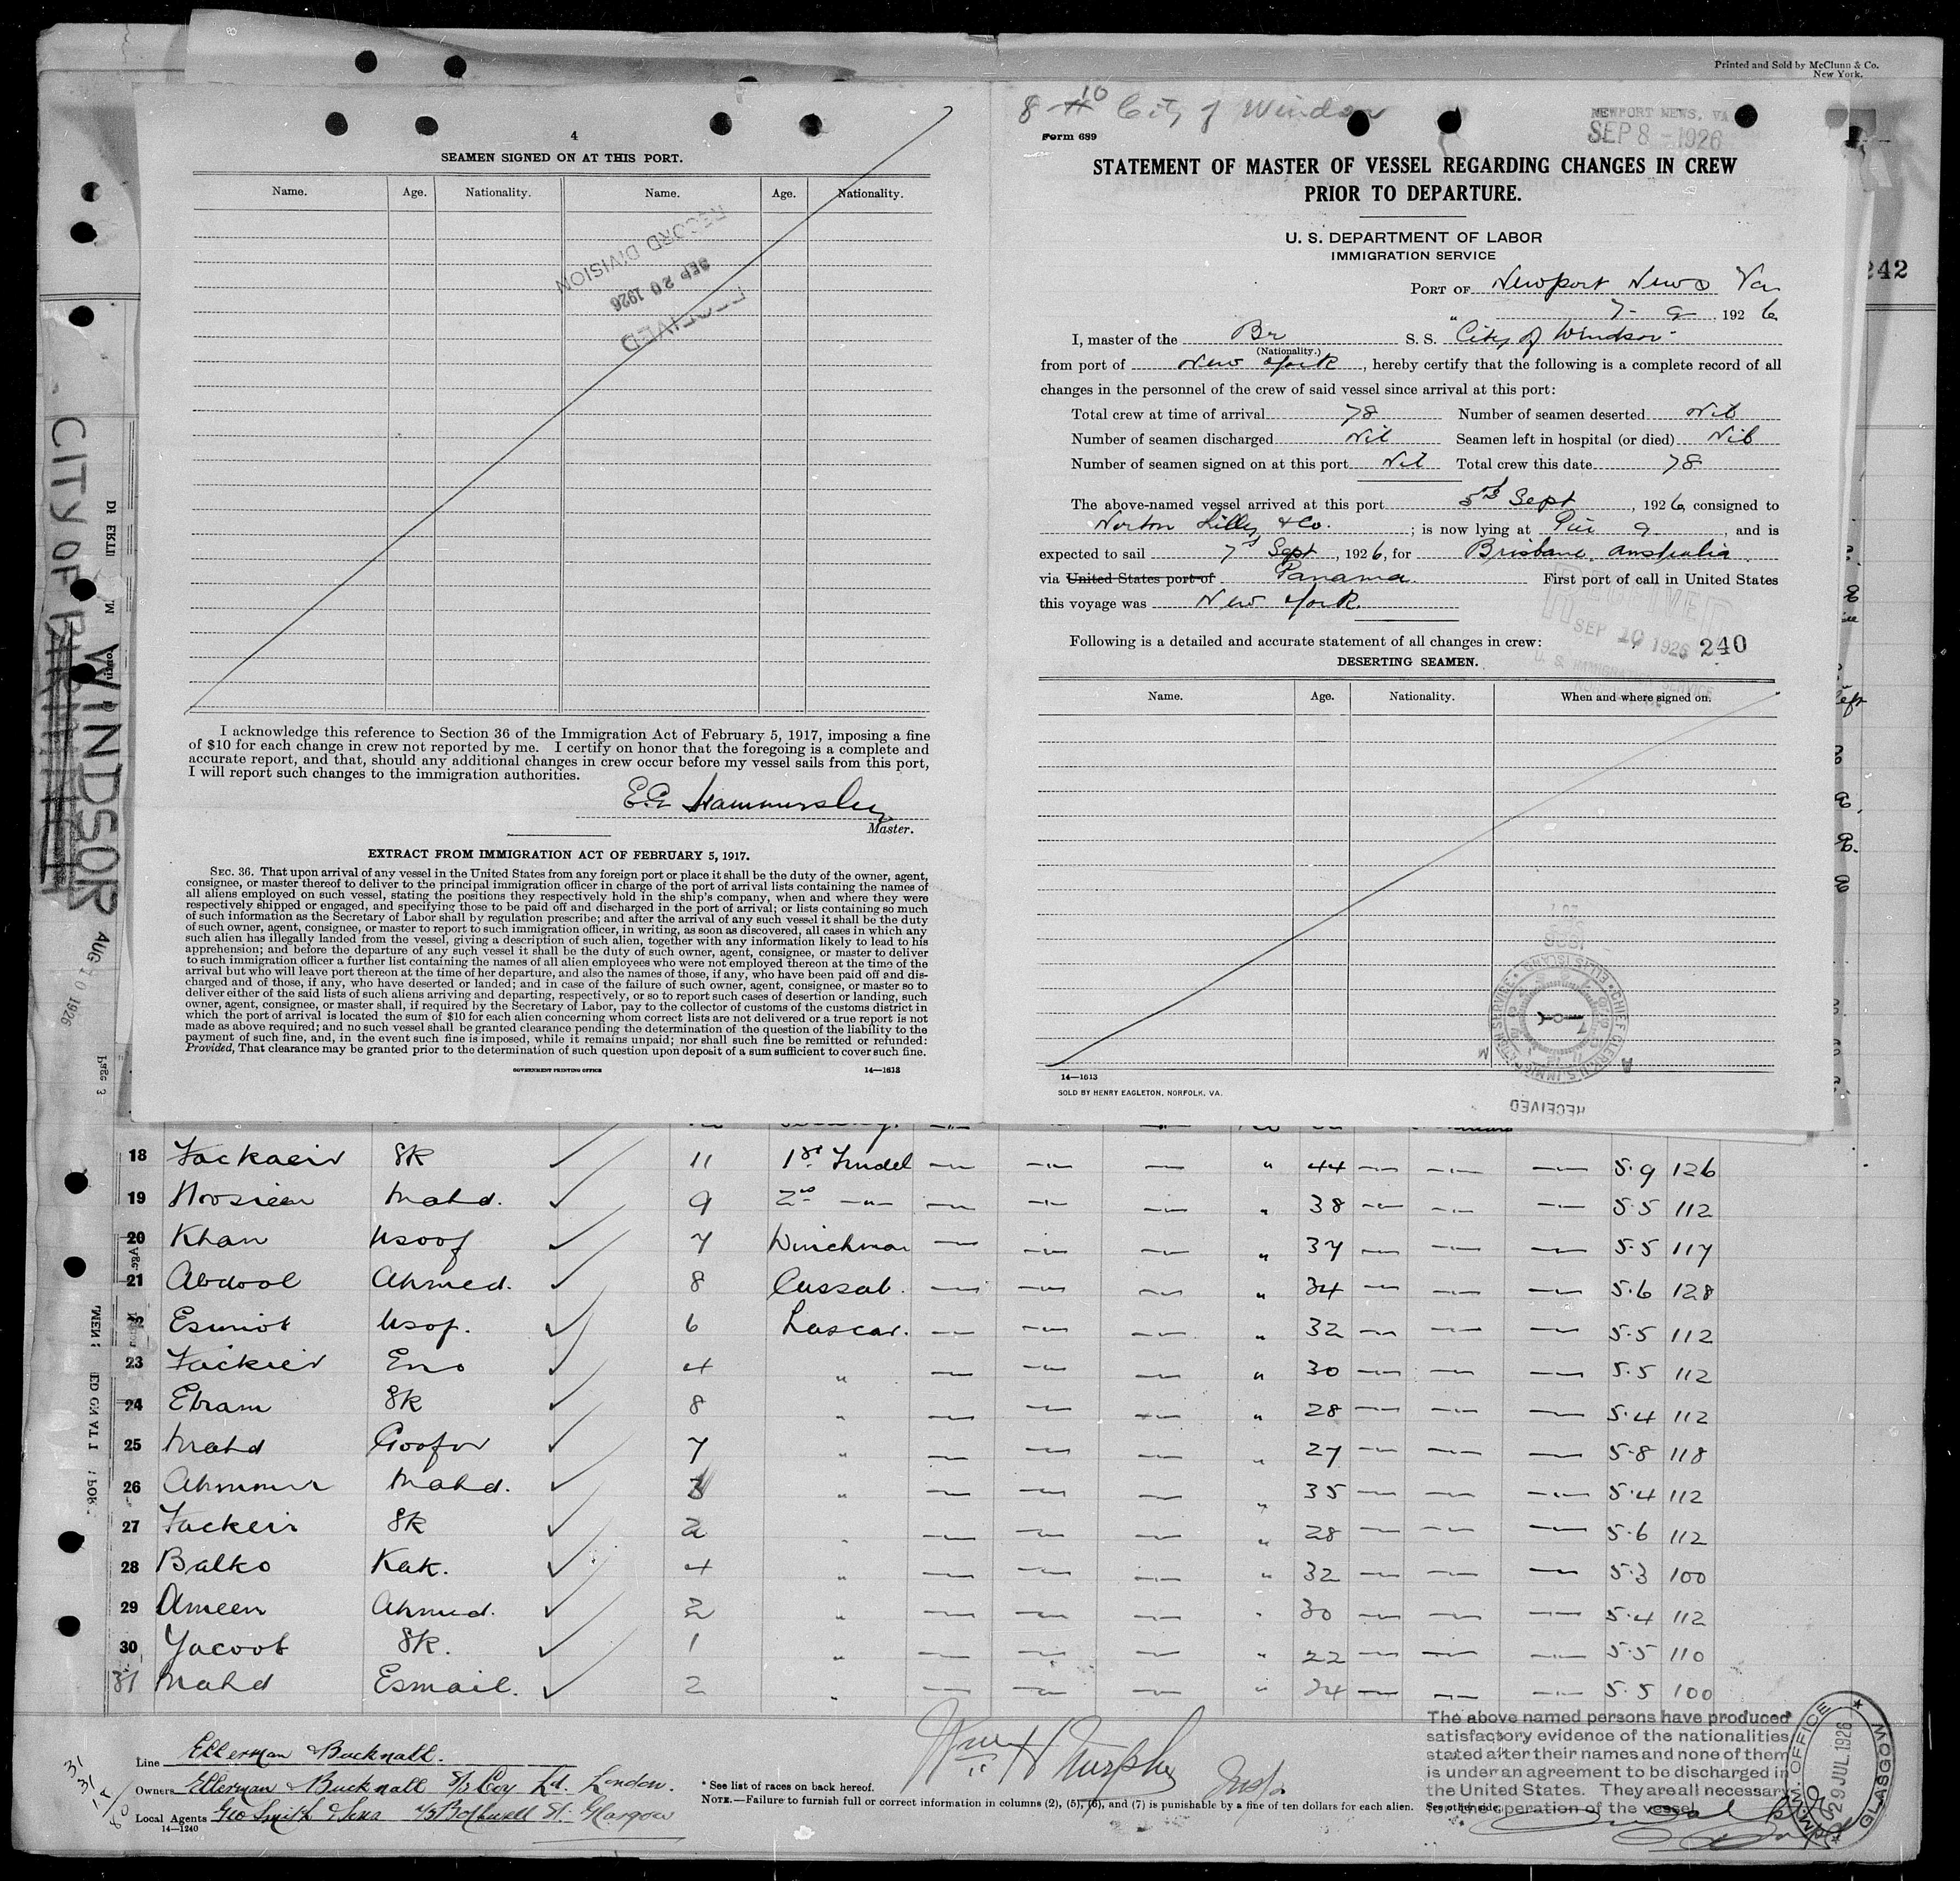 Printed and Sold by McClunn & Co.
New York.
4
SEAMEN SIGNED ON AT THIS PORT.
Name. Age. Nationality. Name. Age. Nationality.
RECEIVED
SEP 20 1926
RECORD DIVISION
I acknowledge this reference to Section 36 of the Immigration Act of February 5, 1917, imposing a fine
of $10 for each change in crew not reported by me. I certify on honor that the foregoing is a complete and
accurate report, and that, should any additional changes in crew occur before my vessel sails from this port,
I will report such changes to the immigration authorities.
E.G. Hammersley
Master.
EXTRACT FROM IMMIGRATION ACT OF FEBRUARY 5, 1917.
SEC. 36. That upon arrival of any vessel in the United States from any foreign port or place it shall be the duty of the owner, agent,
consignee, or master thereof to deliver to the principal immigration officer in charge of the port of arrival lists containing the names of
all aliens employed on such vessel, stating the positions they respectively hold in the ship's company, when and where they were
respectively shipped or engaged, and specifying those to be paid off and discharged in the port of arrival; or lists containing so much
of such information as the Secretary of Labor shall by regulation prescribe; and after the arrival of any such vessel it shall be the duty
of such owner, agent, consignee, or master to report to such immigration officer, in writing, as soon as discovered, all cases in which any
such alien has illegally landed from the vessel, giving a description of such alien, together with any information likely to lead to his
apprehension; and before the departure of any such vessel it shall be the duty of such owner, agent, consignee, or master to deliver
to such immigration officer a further list containing the names of all alien employees who were not employed thereon at the time of the
arrival but who will leave port thereon at the time of her departure, and also the names of those, if any, who have been paid off and dis-
charged and of those, if any, who have deserted or landed; and in case of the failure of such owner, agent, consignee, or master so to
deliver either of the said lists of such aliens arriving and departing, respectively, or so to report such cases of desertion or landing, such
owner, agent, consignee, or master shall, if required by the Secretary of Labor, pay to the collector of customs of the customs district in
which the port of arrival is located the sum of $10 for each alien concerning whom correct lists are not delivered or a true report is not
made as above required; and no such vessel shall be granted clearance pending the determination of the question of the liability to the
payment of such fine, and, in the event such fine is imposed, while it remains unpaid; nor shall such fine be remitted or refunded:
Provided, That clearance may be granted prior to the determination of such question upon deposit of a sum sufficient to cover such fine.
GOVERNMENT PRINTING OFFICE 14—1613
8 10 City of Windsor
Form 689
NEWPORT NEWS, VA
SEP 8 - 1926
STATEMENT OF MASTER OF VESSEL REGARDING CHANGES IN CREW
PRIOR TO DEPARTURE.
U. S. DEPARTMENT OF LABOR
IMMIGRATION SERVICE
242
PORT OF Newport News Va
7 - 9 1926
I, master of the Br S. S. "City of Windsor"
(Nationality.)
from port of New York, hereby certify that the following is a complete record of all
changes in the personnel of the crew of said vessel since arrival at this port:
Total crew at time of arrival 78 Number of seamen deserted Nil
Number of seamen discharged Nil Seamen left in hospital (or died) Nil
Number of seamen signed on at this port Nil Total crew this date 78
The above-named vessel arrived at this port 5th Sept, 1926, consigned to
Norton Lilly & Co.; is now lying at Pier 9, and is
expected to sail 7th Sept, 1926, for Brisbane Australia
via United States port of Panama. First port of call in United States
this voyage was New York.
RECEIVED
SEP 10 1926
U. S. IMMIGRATION SERVICE
Following is a detailed and accurate statement of all changes in crew: 240
DESERTING SEAMEN.
Name. Age. Nationality. When and where signed on.
CHIEF CLERK U.S. IMMIGRATION SERVICE ELLIS ISLAND
RECEIVED
14—1613
SOLD BY HENRY EAGLETON, NORFOLK, VA.
CITY OF WINDSOR
AUG 10 1926
Page 3
18 Fackaeir SK 11 1st Tindel — — — " 44 — — — 5.9 126
19 Hoosieen Mahd. 9 2nd —"— — — — " 38 — — — 5.5 112
20 Khan Usoof 7 Winchman — — — " 37 — — — 5.5 117
21 Abdool Ahmed. 8 Cussab. — — — " 34 — — — 5.6 128
22 Esmiot Usof. 6 Lascar. — — — " 32 — — — 5.5 112
23 Fackier Eno 4 " — — — " 30 — — — 5.5 112
24 Ebram SK 8 " — — — " 28 — — — 5.4 112
25 Mahd Goofor 7 " — — — " 27 — — — 5.8 118
26 Ahmmir Mahd. 3 " — — — " 35 — — — 5.4 112
27 Fackeir SK 2 " — — — " 28 — — — 5.6 112
28 Balko Kak. 4 " — — — " 32 — — — 5.3 100
29 Ameen Ahmed. 2 " — — — " 30 — — — 5.4 112
30 Yacoob SK. 1 " — — — " 22 — — — 5.5 110
31 Mahd Esmail. 2 " — — — " 24 — — — 5.5 100
Line Ellerman & Bucknall.
Owners Ellerman & Bucknall S/S Coy Ld. London.
Local Agents Geo Smith & Sons 75 Bothwell St. Glasgow
14—1240
Wm H Murphy Insp.
* See list of races on back hereof.
NOTE.—Failure to furnish full or correct information in columns (2), (5), (6), and (7) is punishable by a fine of ten dollars for each alien. See other side.
The above named persons have produced
satisfactory evidence of the nationalities
stated after their names and none of them
is under an agreement to be discharged in
the United States. They are all necessary
operation of the vessel
IMM. OFFICE
29 JUL 1926
GLASGOW